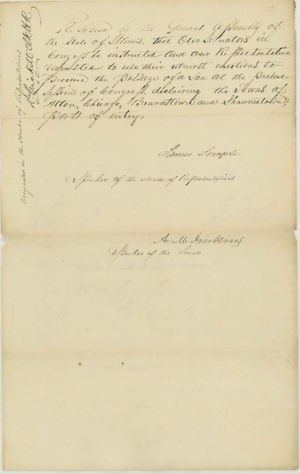 Resolved by the General Assembly of
the State of Illinois, that Our Senators in
Congress be instructed and our Representative
requested to use their utmost exertions to
procure the passage of a Law at the present
Session of Congress, declaring the Towns of
Alton, Chicago, Beardstown and Shawneetown,
ports of entry.
James Semple
Speaker of the House of Representatives
A. M. Jenkins
Speaker of the Senate
in the House of Representatives